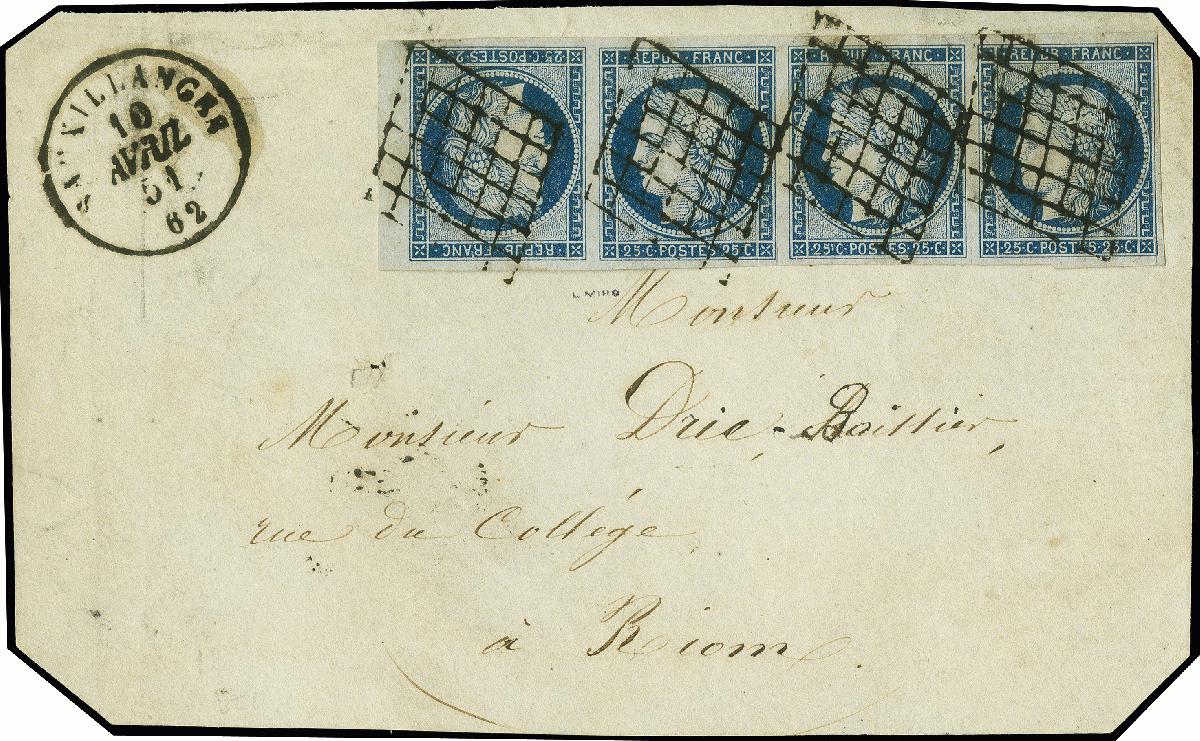 SAUXILLANGES
10
AVRIL
51
62
25 C·POSTES·25 C
REPUB·FRANC
REPUB·FRANC
REPUB·FRANC
REPUB·FRANC
25·C·POSTES·25·C
25·C·POSTES·25·C
25·C·POSTES·25·C
Monsieur
Monsieur Drie,-Baittier,
rue du Collége,
à Riom.